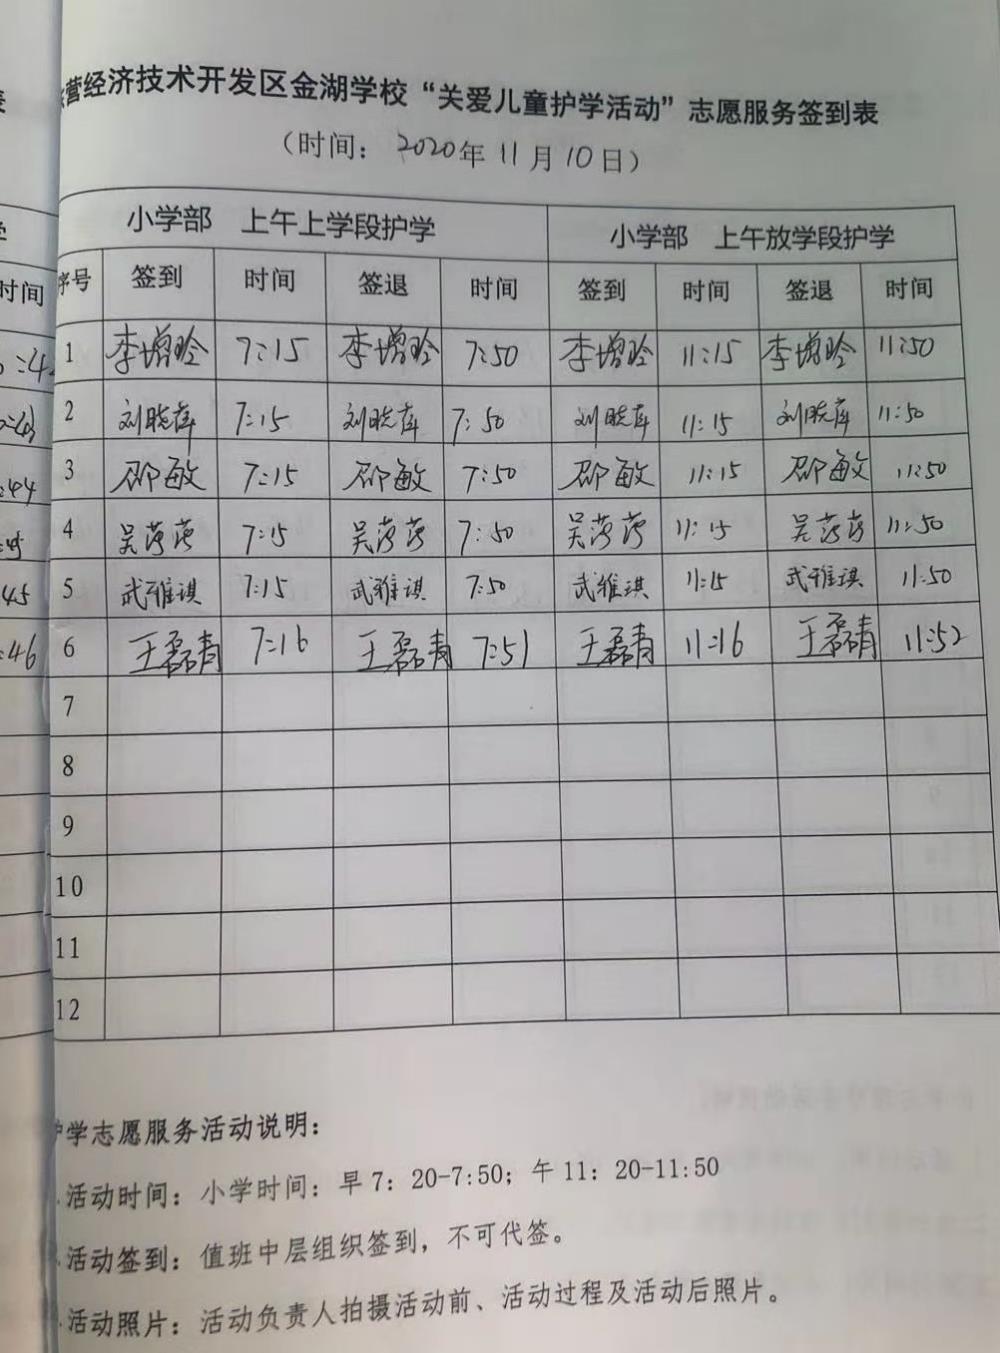 营经济技术开发区金湖学校“关爱儿童护学活动”志愿服务签到表
（时间：2020年11月10日）
小学部 上午上学段护学 小学部 上午放学段护学
时间 序号 签到 时间 签退 时间 签到 时间 签退 时间
1 李增玲 7:15 李增玲 7:50 李增玲 11:15 李增玲 11:50
2 刘晓萍 7:15 刘晓萍 7:50 刘晓萍 11:15 刘晓萍 11:50
3 邵敏 7:15 邵敏 7:50 邵敏 11:15 邵敏 11:50
:44
4 吴萍萍 7:15 吴萍萍 7:50 吴萍萍 11:15 吴萍萍 11:50
5 武雅琪 7:15 武雅琪 7:50 武雅琪 11:15 武雅琪 11:50
:45
6 王磊青 7:16 王磊青 7:51 王磊青 11:16 王磊青 11:52
:46
7
8
9
10
11
12
护学志愿服务活动说明：
活动时间：小学时间：早7：20-7:50；午11：20-11:50
活动签到：值班中层组织签到，不可代签。
活动照片：活动负责人拍摄活动前、活动过程及活动后照片。